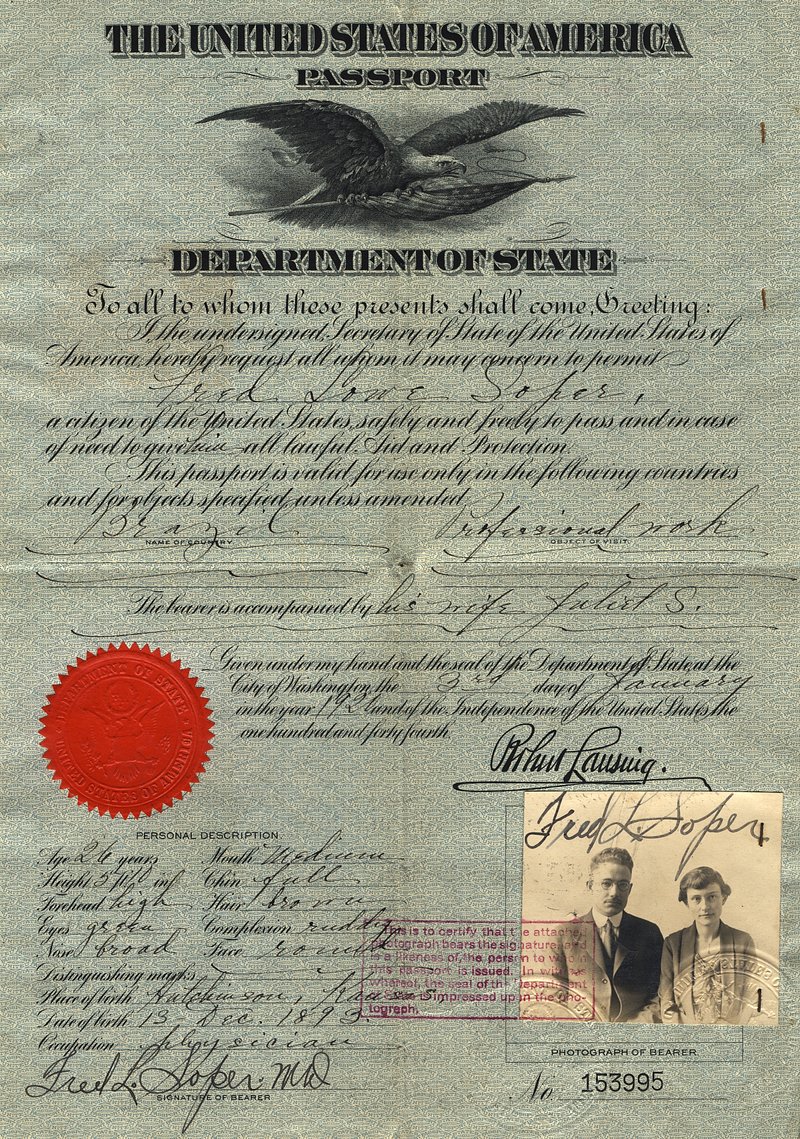 THE UNITED STATES OF AMERICA
PASSPORT
DEPARTMENT OF STATE
To all to whom these presents shall come, Greeting:
I, the undersigned, Secretary of State of the United States of
America, hereby request all whom it may concern to permit
Fred Lowe Soper,
a citizen of the United States, safely and freely to pass and in case
of need to give him all lawful Aid and Protection.
This passport is valid for use only in the following countries
and for objects specified, unless amended
Brazil Professional work
NAME OF COUNTRY. OBJECT OF VISIT.
The bearer is accompanied by his wife Juliet S.
Given under my hand and the seal of the Department of State at the
City of Washington, the 3rd day of January
in the year 1920 and of the Independence of the United States the
one hundred and forty fourth.
Robert Lansing.
DEPARTMENT OF STATE
UNITED STATES OF AMERICA
PERSONAL DESCRIPTION.
Age 26 years Mouth Medium
Height 5 ft 10 in Chin full
Forehead high Hair brown
Eyes green Complexion ruddy
Nose broad Face round
Distinguishing marks
Place of birth Hutchinson, Kansas
Date of birth 13 Dec. 1893.
Occupation physician
Fred L. Soper. MD
SIGNATURE OF BEARER
Fred L. Soper
This is to certify that the attached
photograph bears the signature, and
is a likeness of, the person to whom
this passport is issued. In witness
whereof, the seal of the Department
of State is impressed upon the pho-
tograph.
PHOTOGRAPH OF BEARER
No. 153995